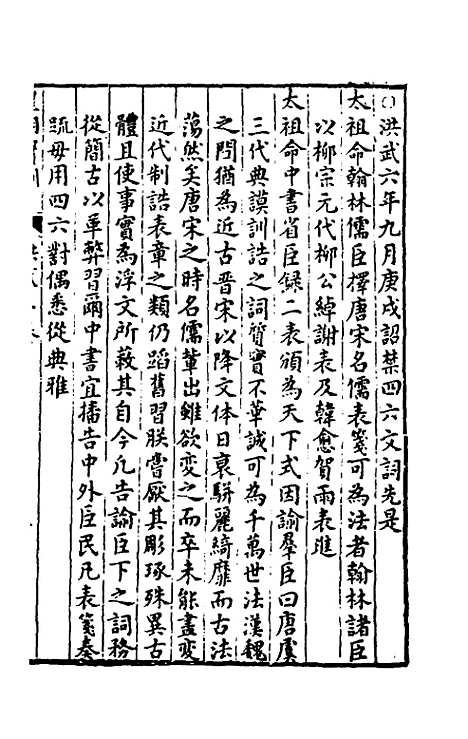 ○洪武六年九月庚戌詔禁四六文詞先是
太祖命翰林儒臣擇唐宋名儒表箋可為法者翰林諸臣
以柳宗元代柳公綽謝表及韓愈賀雨表進
太祖命中書省臣録二表頒為天下式因諭羣臣曰唐虞
三代典謨訓誥之詞質實不華誠可為千萬世法漢魏
之間猶為近古晉宋以降文体日衰駢麗綺靡而古法
蕩然矣唐宋之時名儒輩出雖欲變之而卒未能盡變
近代制誥表章之類仍蹈舊習朕嘗厭其彫琢殊異古
體且使事實為浮文所蔽其自今凡告諭臣下之詞務
從簡古以革弊習爾中書宜播告中外臣民凡表箋奏
疏毋用四六對偶悉從典雅